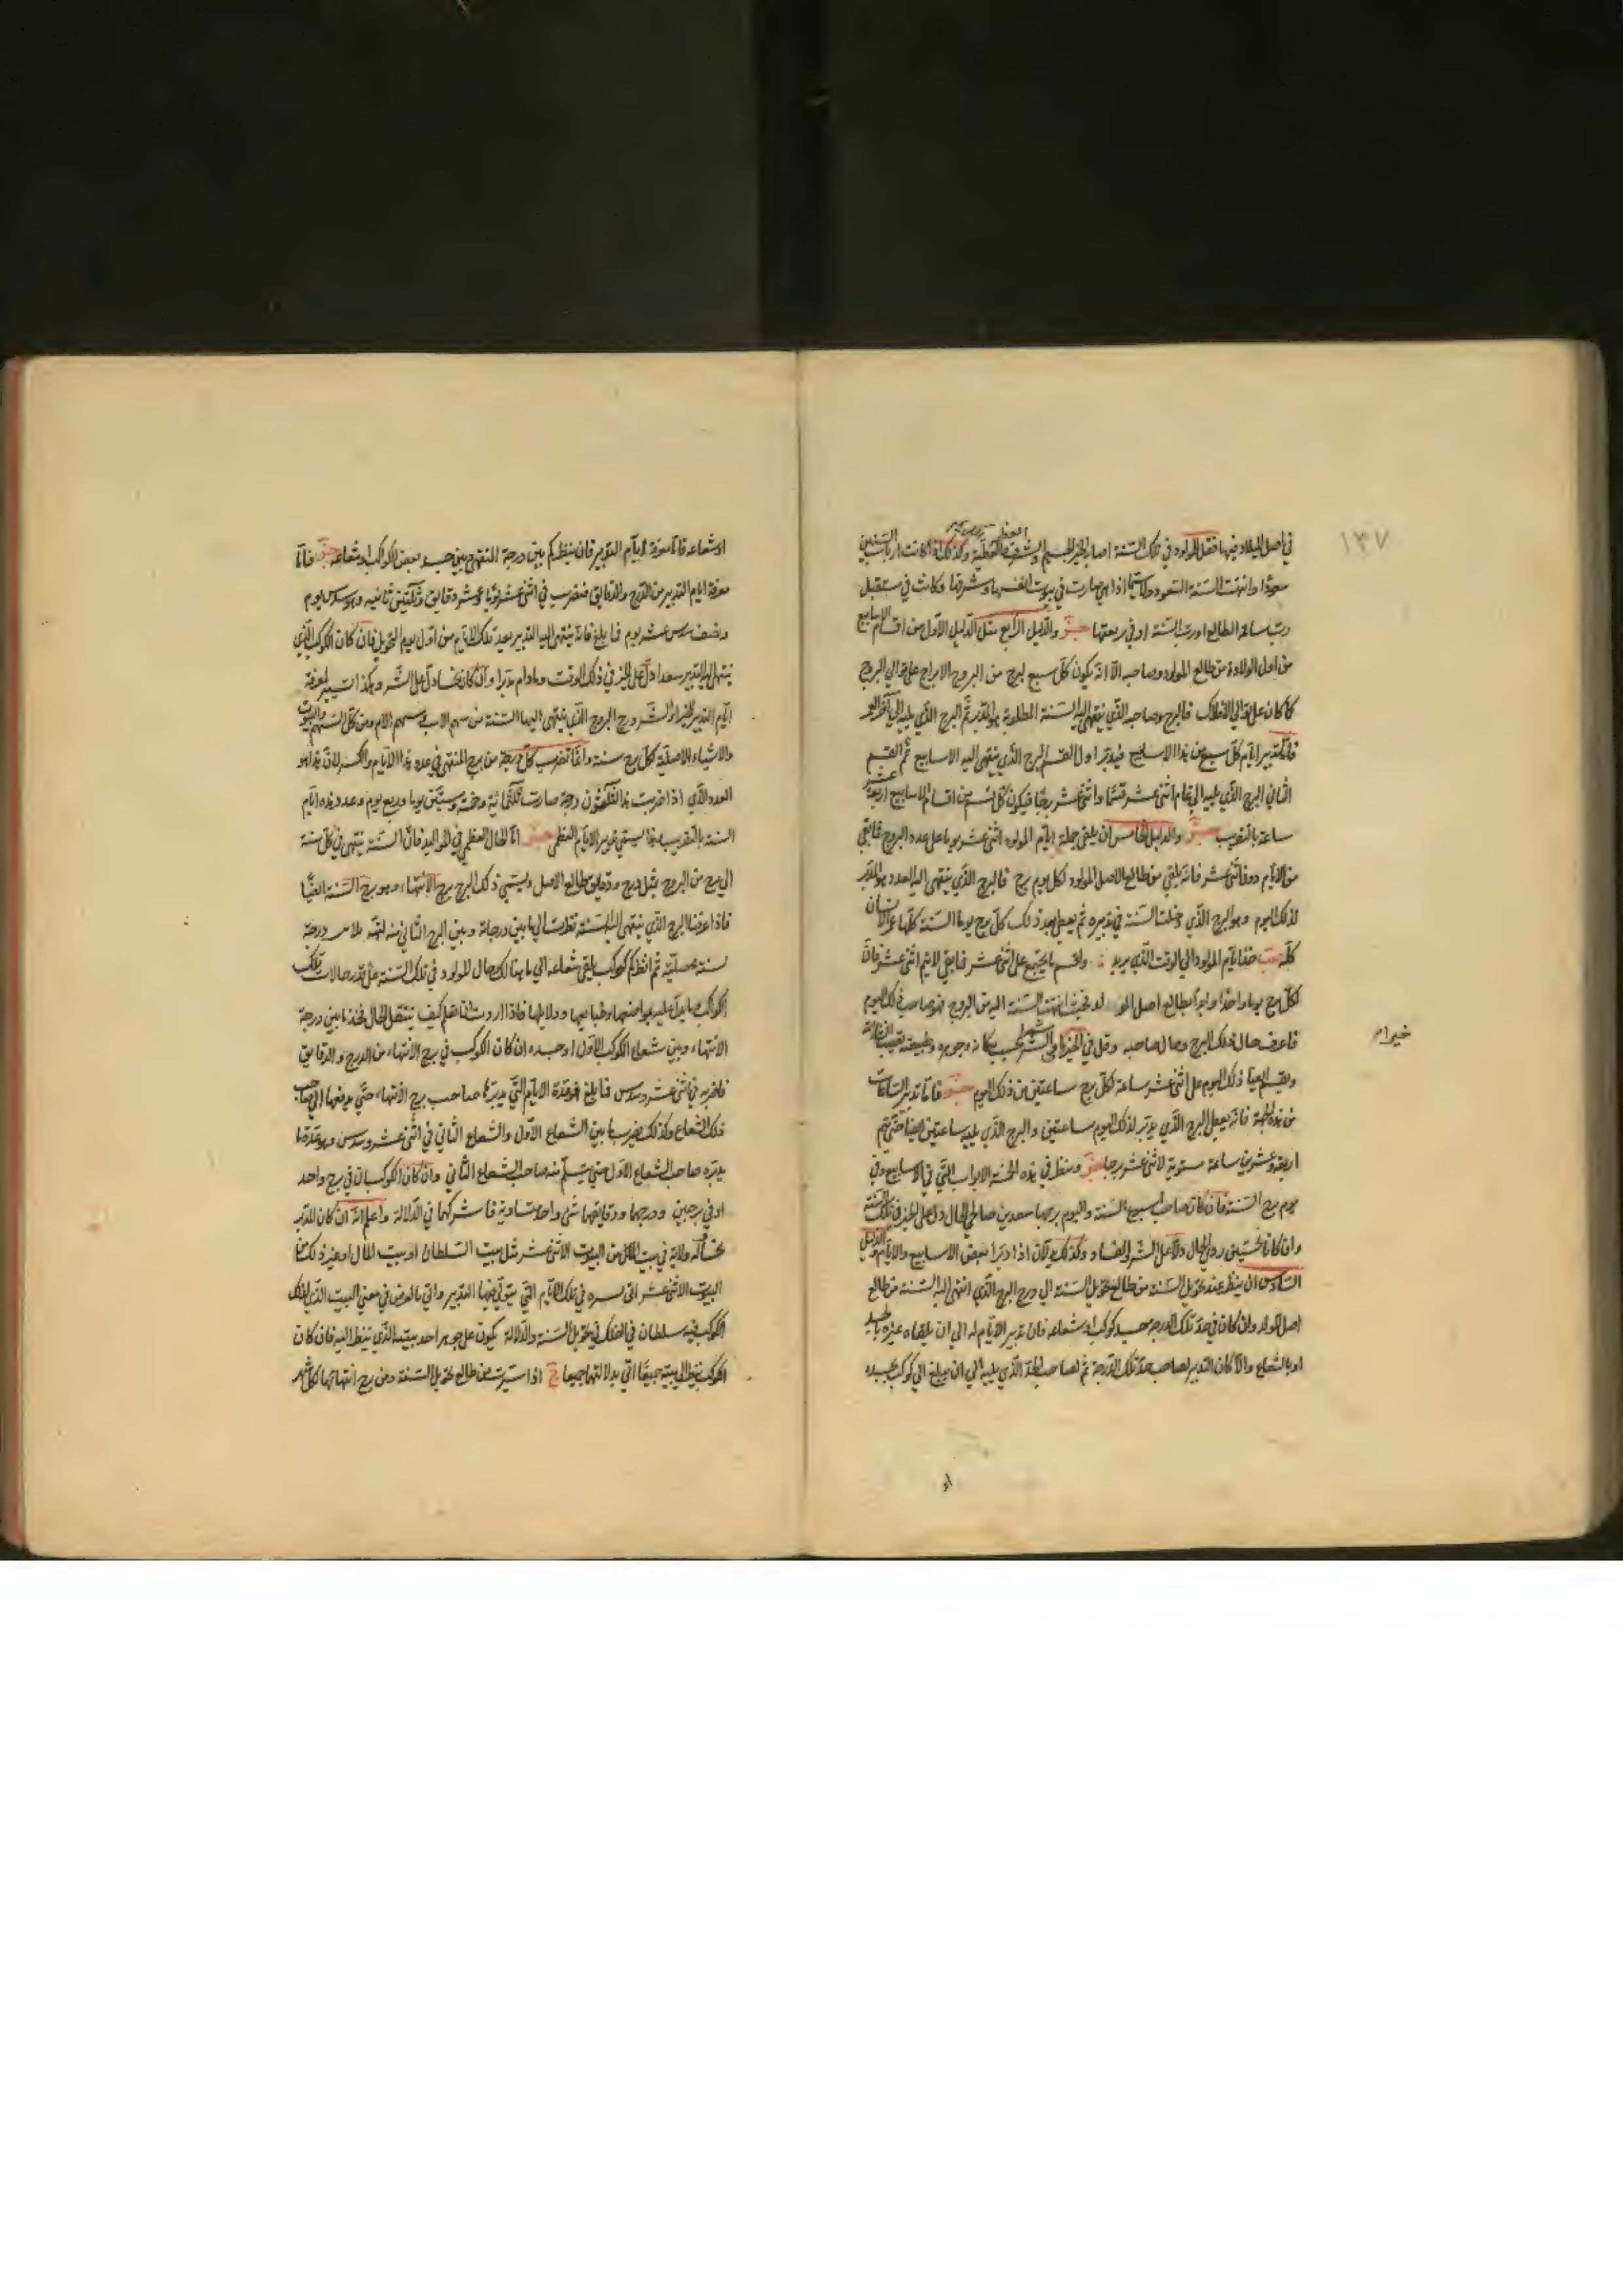 ١٣٧
في اصل الميلاد فيها فقل المولود في تلك السنة اصاب الخير الجسيم والشرف العظيم وكذلك اذا كانت ارباب السنين
سعودا وانتهت السنة السعود ولا سيما اذا هي صارت في بيوت انفسها وشرفها وكانت في مستقبل
رب ساعة الطالع او رب السنة او في ربعتها والدليل الرابع مثل الدليل الاول من اقسام الاسابيع
من اول الولادة من طالع المولود وصاحبه الا انه يكون كل سبع لبرج من البروج الابراج على توالي البروج
كما كان على توالي الافلاك فالبرج وصاحبه الذي ينتهي اليه السنة المطلوبة هو المدبر ثم البرج الذي يليه الى آخر
فاما تدبير ايام كل سبع من هذا الاسابيع فيدبر اول القسم البرج الذي ينتهي اليه الاسابيع ثم القسم
الثاني البرج الذي يليه الى تمام اثنى عشر قسما واثنى عشر برجا فيكون كل قسم من اقسام الاسابيع اربعة عشر
ساعة بالتقريب والدليل الخامس ان يلقى جملة ايام المولود اثنى عشر يوما على عدد البروج فما بقي
من الايام دون اثنى عشر فانه يلقي من طالع الاصل المولود لكل يوم برج فالبرج الذي ينتهي اليه العدد هو المدبر
لذلك اليوم وهو البرج الذي دخلت السنة في تدبيره ثم يعطى بعد ذلك كل برج يوما السنة كلها عمر الانسان
كله خذ ايام المولود الى الوقت الذي يريد واقسم ما يجتمع على اثنى عشر فما بقي لا يتم اثنى عشر فان
لكل برج يوما واحدا وابدأ بطالع اصل المولد فحيث انتهت السنة اليه من البروج فهو صاحب ذلك اليوم
فاعرف حال ذلك البرج وحال صاحبه وقل في الخير والشر بحسب مكانه وجوهره وطبيعته
خيرا م
ويقسم ايضا ذلك اليوم على اثنى عشر ساعة لكل برج ساعتين من ذلك اليوم فاما تدبير الساعات
من هذه الجهة فانه يعطى البرج الذي يدبر لذلك اليوم ساعتين والبرج الذي يليه ساعتين ايضا حتى تتم
اربعة وعشرين ساعة مستوية لاثنى عشر برجا وينظر في هذه الخمسة الابواب التي في الاسابيع وفي
يوم برج السنة فان كان صاحب اسبوع السنة واليوم برجها سعدين صالحي الحال دل على الخير في تلك السنة
وان كانا نحسين ردي الحال دلا على الشر والفساد وكذلك يدلان اذا دبرا بعض الاسابيع والايام والدليل
السادس ان ينظر عند تحويل السنة من طالع تحويل السنة الى درج البرج الذي انتهى اليه السنة من طالع
اصل المولد وان كان في حد تلك الدرجة جسد كوكب او شعاعه فان تدبير الايام له الى ان يلقاه غيره بالجسد
او بالشعاع والا كان التدبير لصاحب حد تلك الدرجة ثم لصاحب الحد الذي يليه الى ان يبلغ الى كوكب بجسده
او
او شعاعه فاما معرفة ايام التدبير فان ينظر كم بين درجة المنتهى وبين جسد بعض الكواكب او شعاعه فاما
معرفة ايام التدبير من الدرج والدقايق فتضرب في اثنى عشر يوما وعشر دقايق وثلثين ثانيه وهو سدس يوم
ونصف سدس عشر يوم فما بلغ فانه ينتهي اليه التدبير بعد تلك الايام من اول يوم التحويل فان كان الكوكب الذي
ينتهي اليه التدبير سعدا دل على الخير في ذلك الوقت وما دام مدبرا وان كان نحسا دل على الشر وهكذا تسيير لمعرفة
ايام التدبير الخير او الشر درج البروج الذي ينتهي اليها السنة من سهم الاب وسهم الام ومن كل السهم والبيوت
والاشياء الاصلية لكل برج سنة وانما تضرب كل درجة من برج المنتهى في عدد هذا الايام والكسر لان هذا هو
العدد الذي اذا ضربت هذا الثلثون درجة صارت ثلثماية وخمسة وستين يوما وربع يوم وعدد هذه ايام
السنة بالتقريب وهذا يسمى تدبير الايام العظمى اما الحال العظمى في المواليد فان السنة ينتهي في كل سنة
الى برج من البروج بمثل درج ودقايق طالع الاصل ويسمى ذلك البرج برج الانتهاء وهو برج السنة ايضا
فاذا عرفنا البرج الذي ينتهي اليه السنة نظرت الى ما بين درجاته وبين البرج الثاني منه درجة
سنة عملية ثم انظر كم كوكب يلقي شعاعه الى ما هنالك حال المولود في تلك السنة على قدر حالات تلك
الكواكب ما يدل عليه مواضعها وطبايعها ودلايلها فاذا اردت ان تعلم كيف ينتقل الحال فخذ ما بين درجة
الانتهاء وبين شعاع الكوكب الاول او جسده ان كان الكوكب في برج الانتهاء من الدرج والدقايق
فاضربه في اثنى عشر وسدس فما بلغ فهو عدة الايام التي يدبرها صاحب برج الانتهاء حتى يدفعها الى صاحب
ذلك الشعاع وكذلك يضرب ما بين الشعاع الاول والشعاع الثاني في اثنى عشر وسدس وهو عدة ما
يدبره صاحب الشعاع الاول حتى يتسلم منه صاحب الشعاع الثاني وان كان الكوكبان في برج واحد
او في برجين ودرجهما ودقايقهما شيء واحد متساوية فاشركهما في الدلالة واعلم انه ان كان للمدبر
نحسا له ولاية في بيت الملك من البيوت الاثنى عشر مثل بيت السلطان او بيت المال او غير ذلك من
البيوت الاثنى عشر اتى في تلك الايام التي يتولى فيها التدبير واتى بالعرض في معنى البيت الذي لذلك
الكوكب فيه سلطان في الفلك في تحويل السنة والدلالة يكون على جوهر احد بيتيه الذي ينظر اليه فان كان
الكوكب ينظر الى بيتيه جميعا اتى بدلالتهما جميعا اذا سيرت من طالع تحويل السنة ومن برج انتهائها لكل شهر